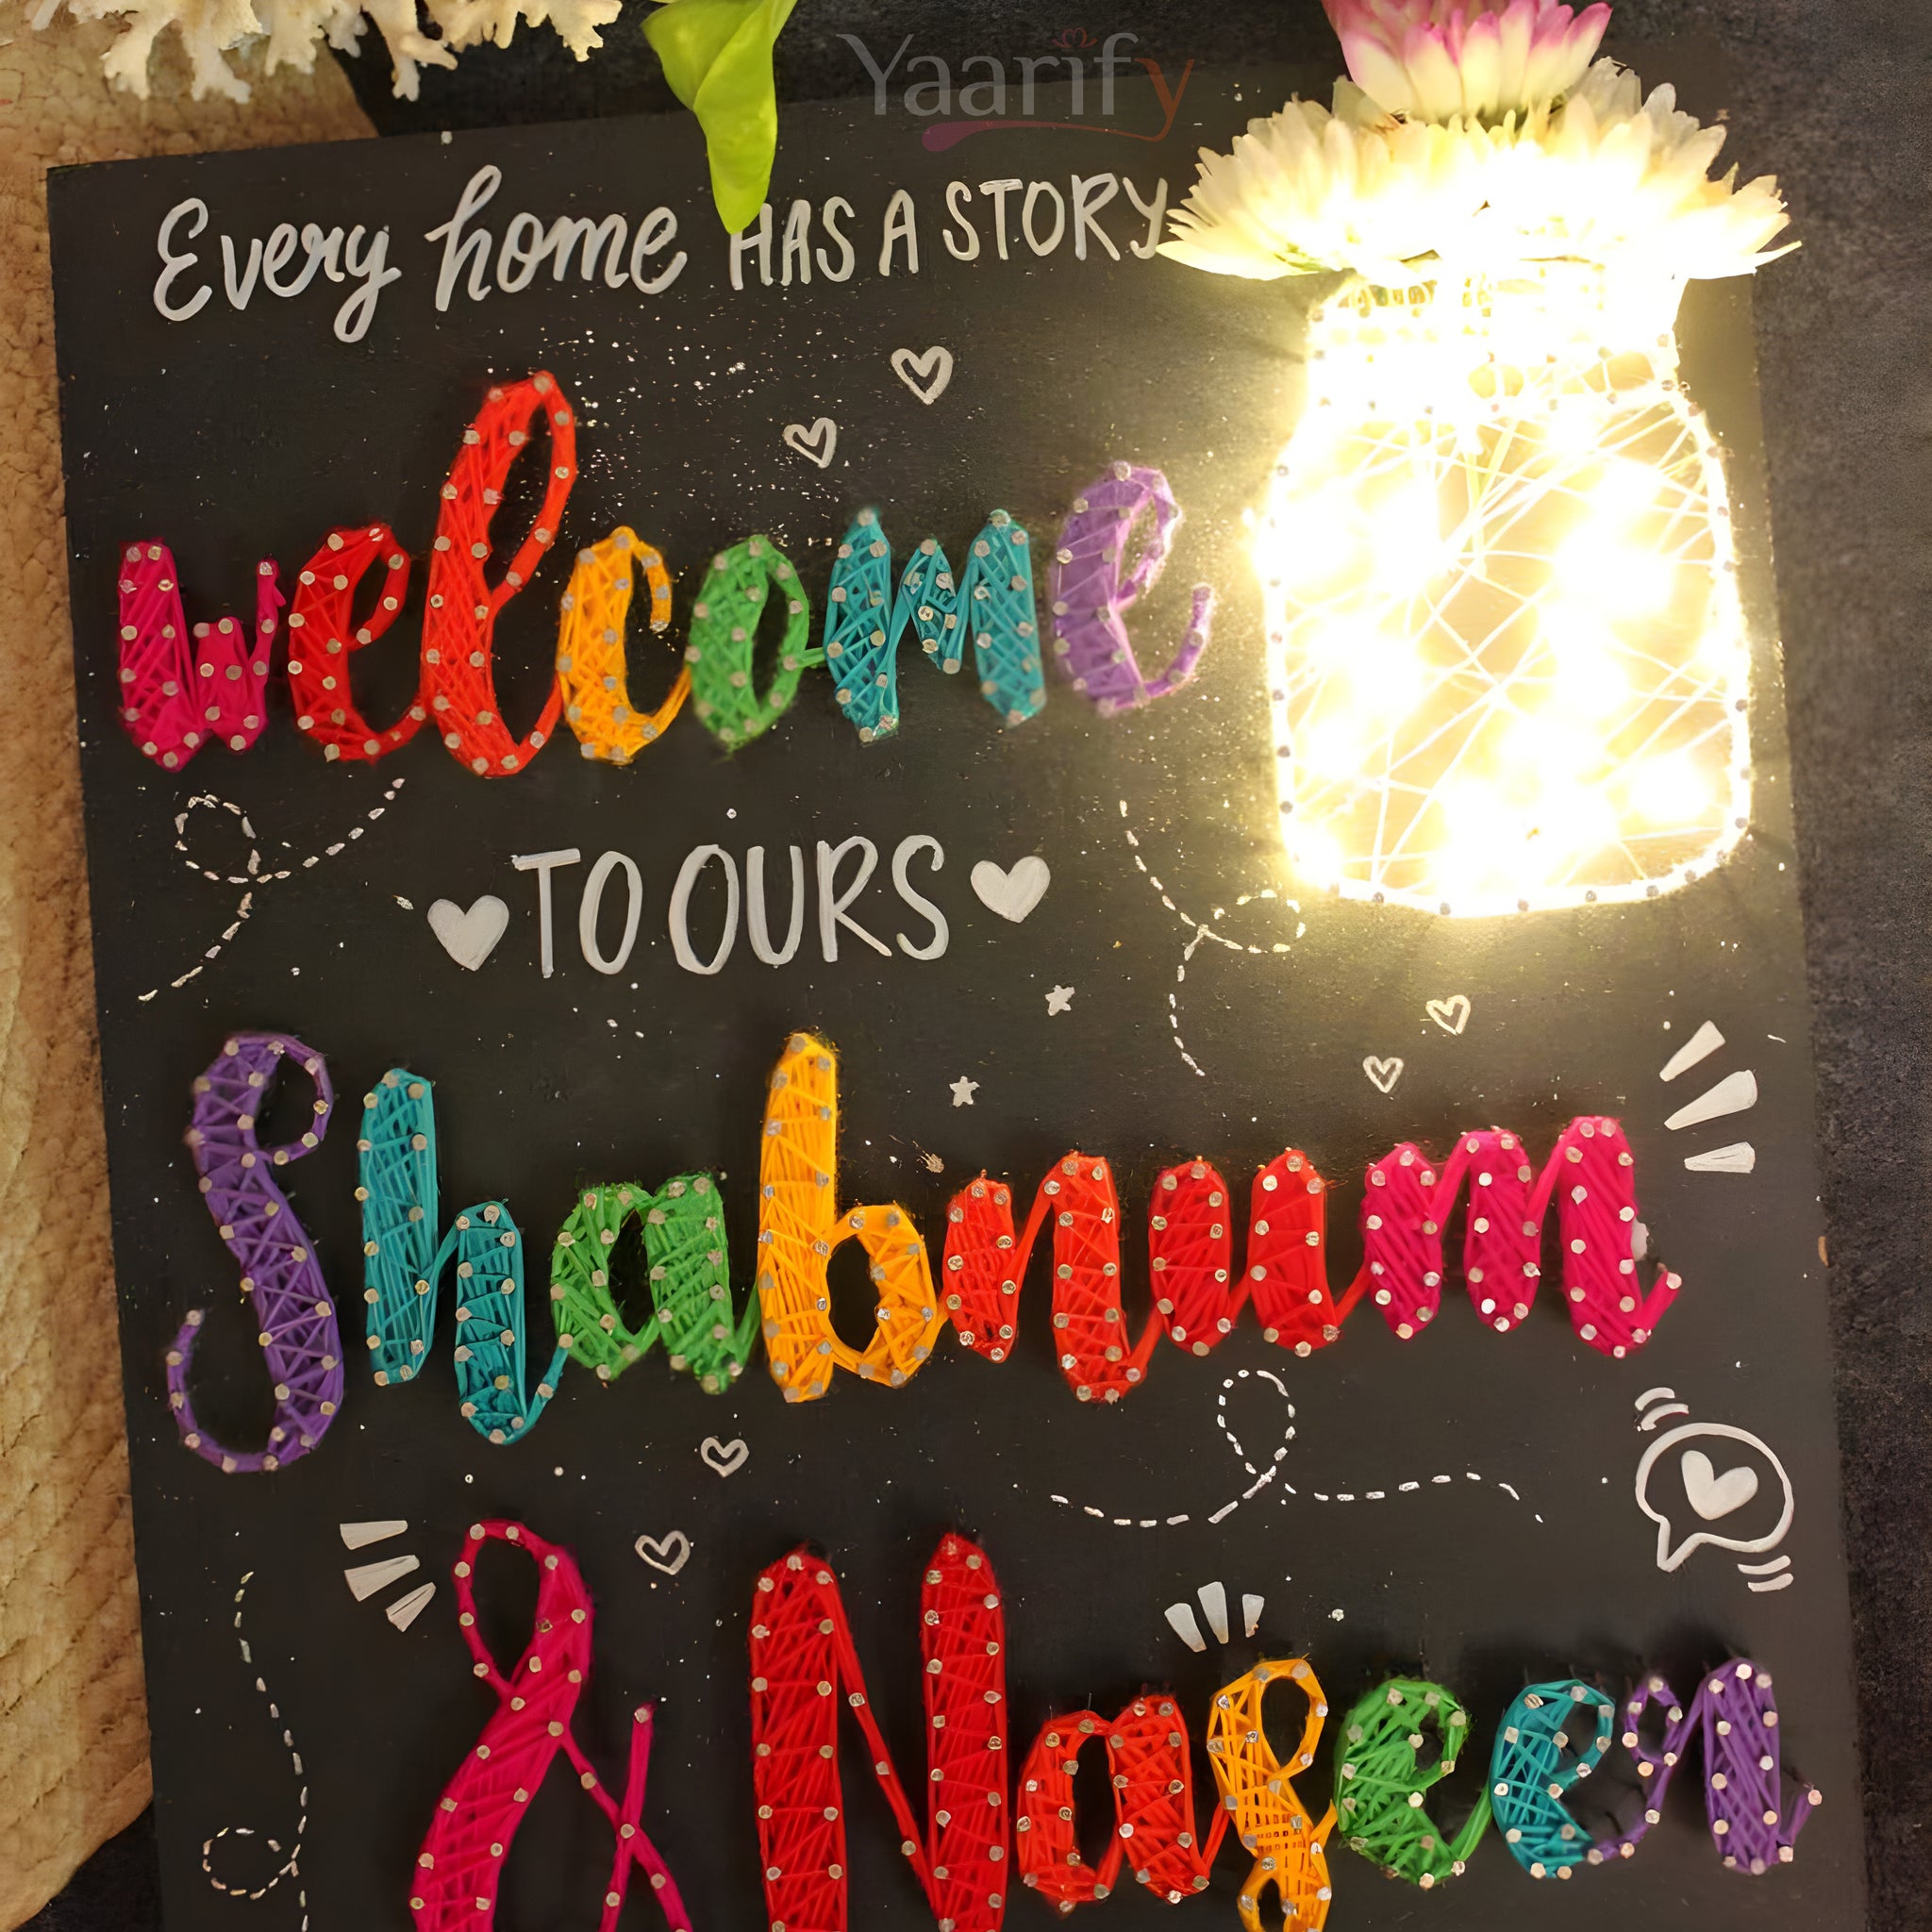 Yaarify
Every home HAS A STORY
welcome
TO OURS
Shabnum
& Nageen